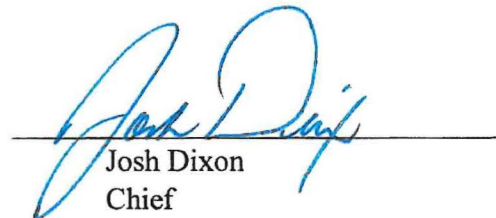 Josh Dixon
Josh Dixon
Chief